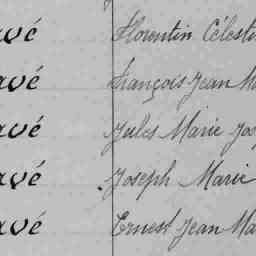 avé Florentin Célesti
avé François Jean M
avé Jules Marie Jos
avé Joseph Marie
avé Ernest Jean Ma